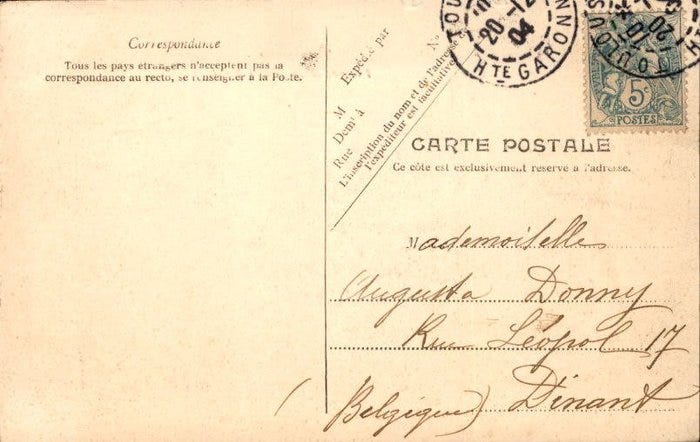 Correspondance
Tous les pays étrangers n'acceptent pas la
correspondance au recto, se renseigner à la Poste.
Expédié par
No
M
Demt à
Rue
L'inscription du nom et de l'adresse de
l'expéditeur est facultative.
20-12
04
HTE GARONNE
TOULOUSE
5c
POSTES
CARTE POSTALE
Ce côte est exclusivement reservé à l'adresse.
Mademoiselle
Augusta Donny
Rue Léopol 17
Dinant
(Belgique)